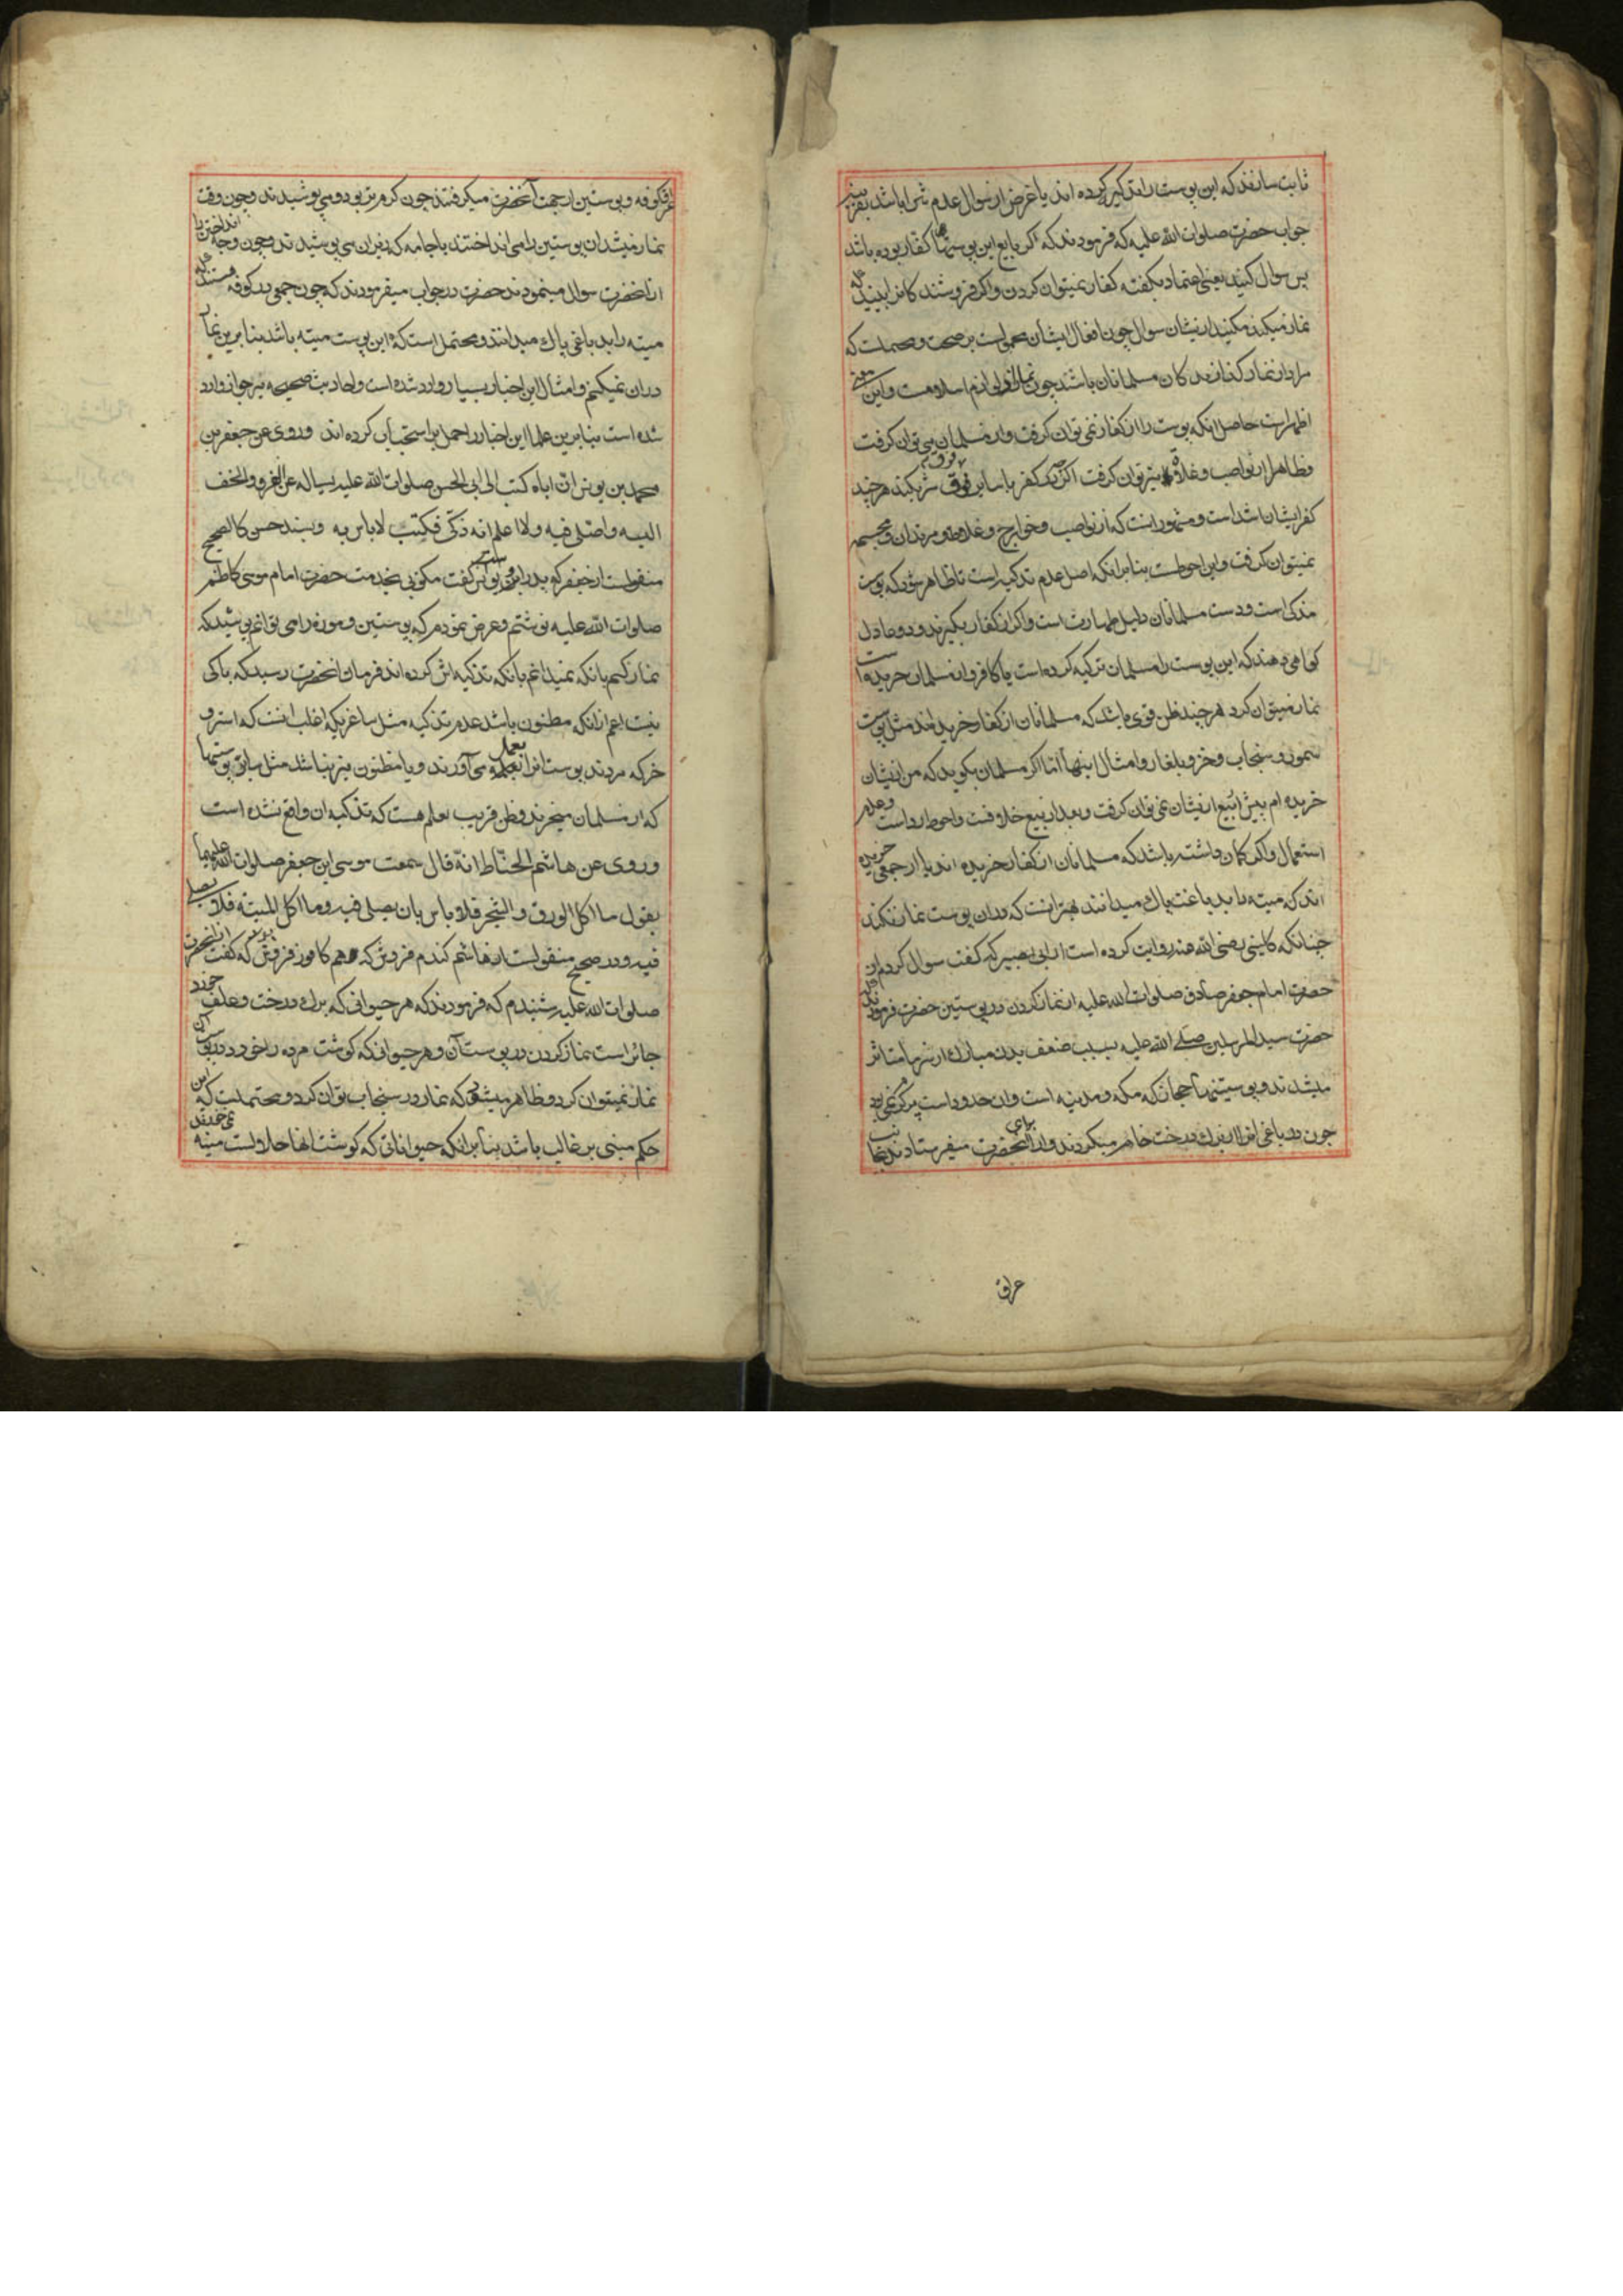 ثابت سازند که این پوست را تذکیه کرده اند یا غرض از سوال عدم شرا باشد بقرینه
جواب حضرت صلوات الله علیه که فرمودند که اکر بایع این پوستها کفار بوده باشد
پس سوال کنید یعنی اعتماد بکفته کفار نمیتوان کردن واکر فروشند کانرا ببینید که
نماز میکنند مکنید از نیشان سوال چون افعال ایشان محمول است بر صحت و محتملست که
مراد از نماز کذارندکان مسلمانان باشد چون نماز از لوازم اسلامست واین معنی
اظهر است حاصل انکه پوست را از کفار نمی توان کرفت واز مسلمان می توان کرفت
وظاهرا از نواصب وغلاة نیز توان کرفت اکر در کفر با سایر فرق شریکند هر چند
کفر ایشان اشد است ومشهور اینست که از نواصب وخوارج وغلاة و مرتدان ومجسمه
نمیتوان کرفت واین احوطست بنابر انکه اصل عدم تذکیه است تا ظاهر شود که پوست
مذکی است ودست مسلمانان دلیل طهارت است واکر از کفار بکیرند و دو عادل
کواهی دهند که این پوست را مسلمان تذکیه کرده است یا کافر از مسلمان خریده است
نماز میتوان کرد هر چند ظن قوی باشد که مسلمانان از کفار خریده اند مثل پوست
سمور و سنجاب وخز وبلغار وامثال اینها اما اکر مسلمان بکوید که من از نیشان
خریده ام پیش از بیع از نیشان نمی توان کرفت وبعد از بیع خلافست واحوط و عدم
استعمال واکر کمان داشته باشد که مسلمانان از کفار خریده اند یا از جمعی خریده
اند که میته را بدباغت پاک میدانند بهتر انست که در ان پوست نماز نکند
چنانکه کلینی رضی الله عنه روایت کرده است از ابی بصیر که کفت سوال کردم از
حضرت امام جعفر صادق صلوات الله علیه از نماز کردن در پوستین حضرت فرمودند که
حضرت سید المرسلین صلی الله علیه بسبب ضعف بدن مبارک از سرما متاثر
میشدند و پوستینهای حجاز که مکه ومدینه است وان حدود است پر کرم نمی بود
چون دباغی انرا از برک درخت میکردند واز برای انحضرت میفرستادند از جانب
عراق
عراق کوفه و پوستین از جهت آنحضرت میکرفتند چون کرمتر بود و می پوشیدند وچون وقت
نماز میشد ان پوستین را می انداختند با جامه که بزیر ان می پوشیدند وچون وجه انداختن را
از انحضرت سوال مینمودند حضرت در جواب میفرمودند که چون جمعی در کوفه هستند که
میته را بدباغی پاک میدانند و محتمل است که این پوست میته باشد بنابرین نماز
در ان نمیکنم وامثال این اخبار بسیار وارد شده است واحادیث صحیحه بر جواز وارد
شده است بنابرین علما این اخبار را حمل بر استحباب کرده اند وروی عن جعفر بن
محمد بن یونس ان اباه کتب الی ابی الحسن صلوات الله علیه یساله عن الفرو والخف
البسه واصلی فیه ولا اعلم انه ذکی فکتب لا باس به وبسند حسن کالصحیح
منقولست از جعفر که پدر او یونس کفت مکتوبی بخدمت حضرت امام موسی کاظم
صلوات الله علیه نوشتم وعرض نمودم که پوستین وموزه را می توانم پوشید که
نماز کنم با انکه نمیدانم با نکه تذکیه اش کرده اند فرمان انحضرت رسید که باکی
نیست اعم از انکه مظنون باشد عدم تذکیه مثل ساغری که اغلب انست که استر و
خر که مردند پوست انرا بعمل می آورند و یا مظنون نیز نباشد مثل سایر پوستها
که از مسلمان میخرند و ظن قریب بعلم هست که تذکیه ان واقع نشده است
وروی عن هاشم الحناط انه قال سمعت موسی ابن جعفر صلوات الله علیهما
یقول ما اکل الورق والشجر فلا باس بان یصلی فیه وما اکل المیتة فلا یصلی
فیه و در صحیح منقولست از هاشم کندم فروش که کافور فروش بود که کفت از انحضرت
صلوات الله علیه شنیدم که فرمودند که هر حیوانی که برک درخت وعلف خورد
جائز است نماز کردن در پوست آن وهر حیوانی که کوشت مرده را خورد در پوست آن
نماز نمیتوان کرد و ظاهر میشود که نماز در سنجاب توان کرد و محتملست که این
حکم مبنی بر غالب باشد بنابر انکه حیواناتی که کوشت انها حلالست میته نمی خورند